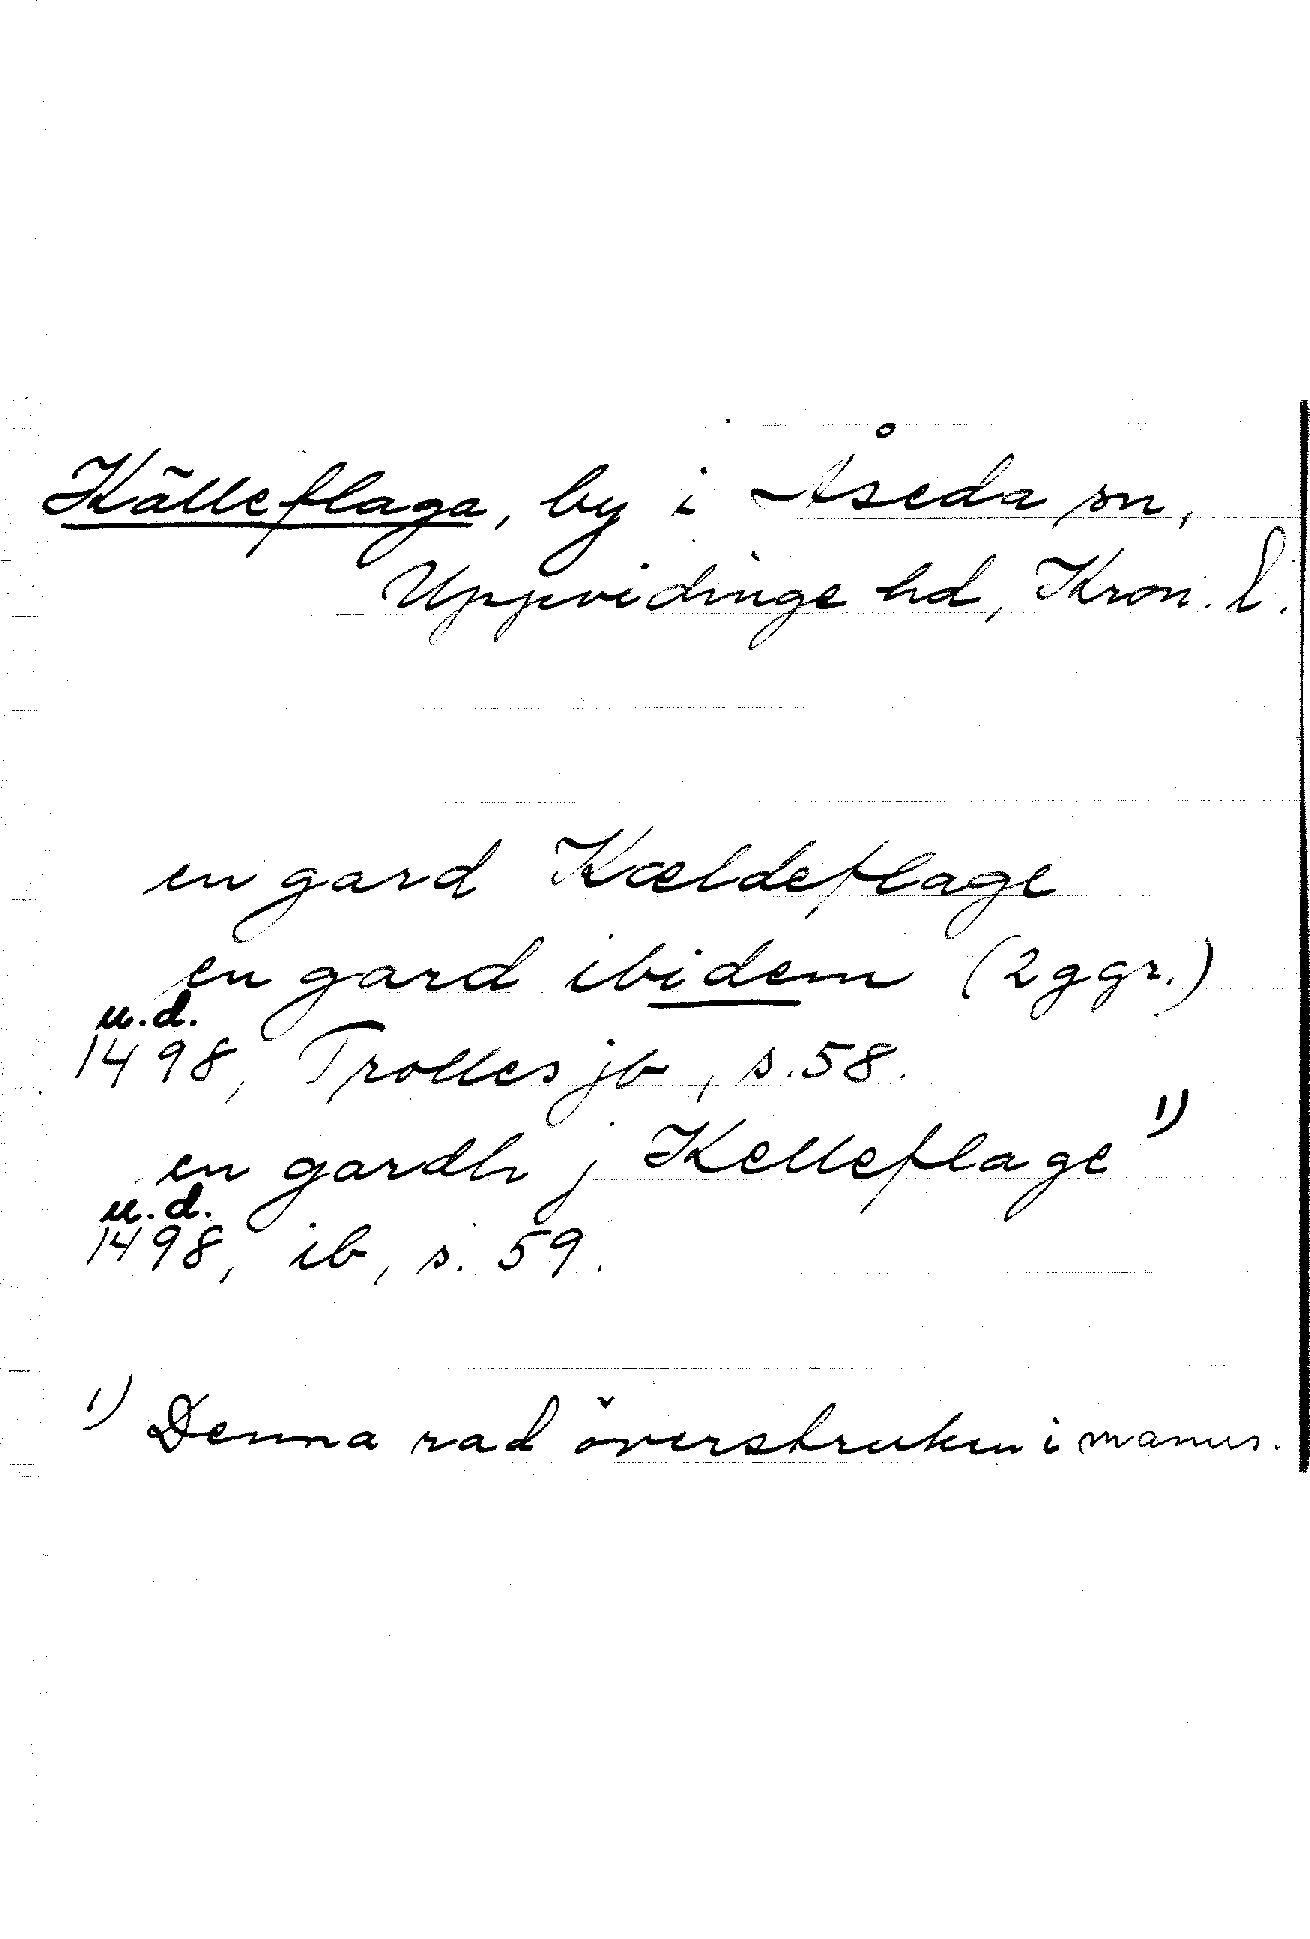 Källeflaga, by i Åseda sn,
Uppvidinge hd, Kron. l.
en gard Kældeflage
en gard ibidem (2 ggr.)
u.d.
1498, Trolles jb, s. 58.
en gardh j Kelleflage 1)
u.d.
1498, ib, s. 59.
1) Denna rad överstruken i manus.